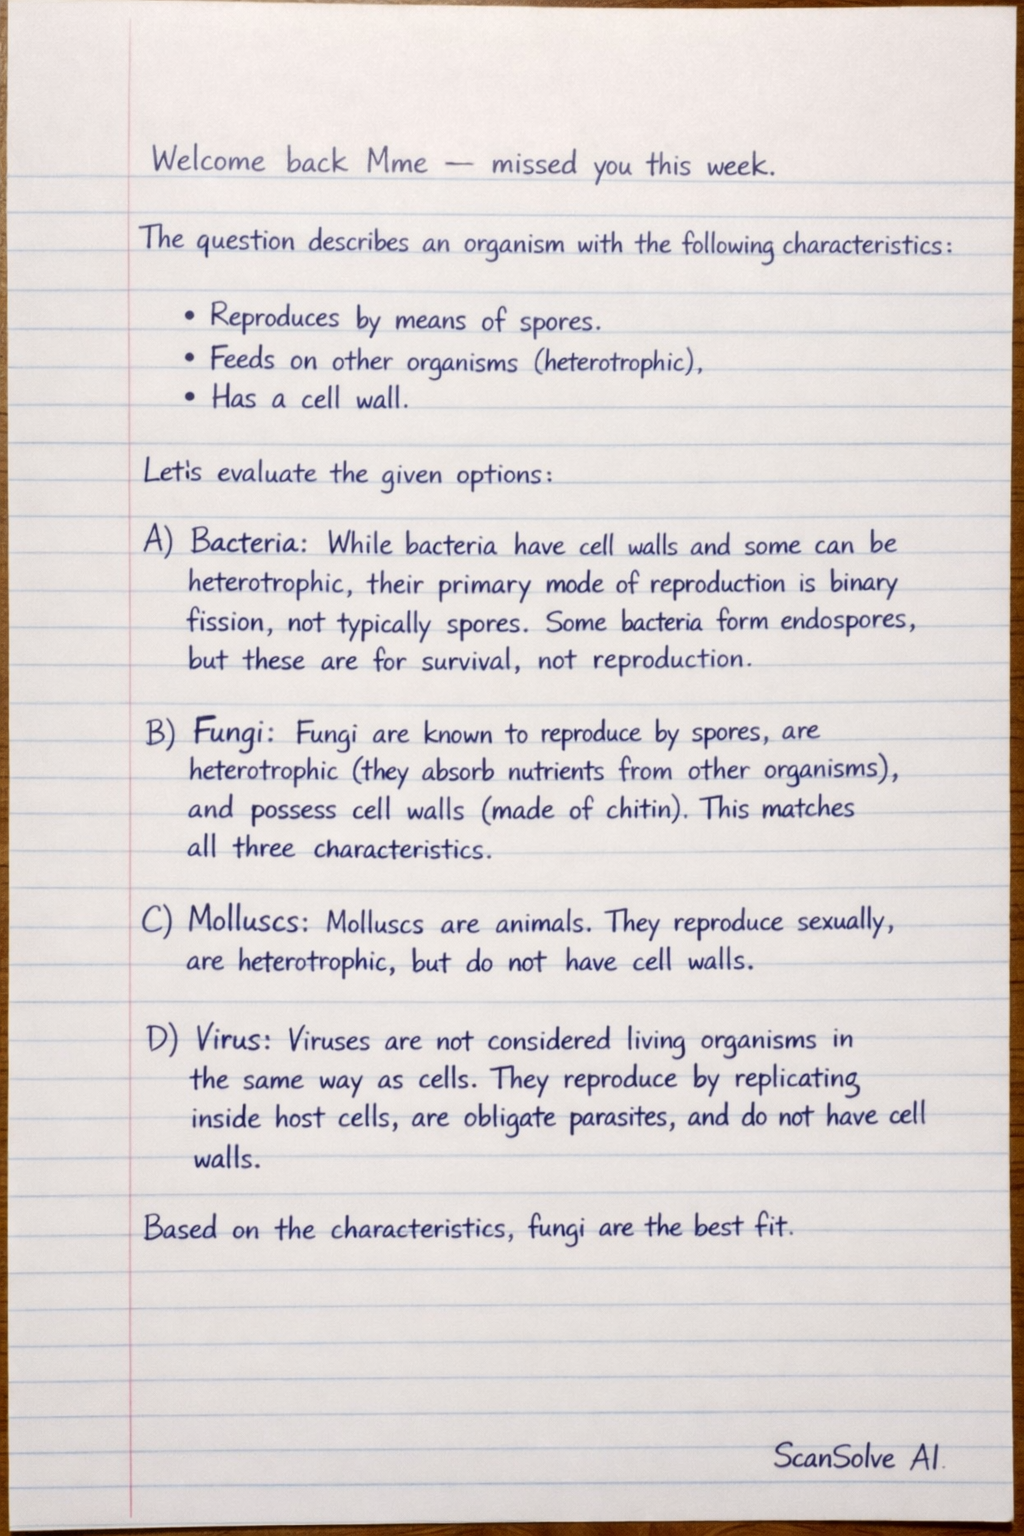 Welcome back Mme — missed you this week.
The question describes an organism with the following characteristics:
• Reproduces by means of spores.
• Feeds on other organisms (heterotrophic),
• Has a cell wall.
Let's evaluate the given options:
A) Bacteria: While bacteria have cell walls and some can be
heterotrophic, their primary mode of reproduction is binary
fission, not typically spores. Some bacteria form endospores,
but these are for survival, not reproduction.
B) Fungi: Fungi are known to reproduce by spores, are
heterotrophic (they absorb nutrients from other organisms),
and possess cell walls (made of chitin). This matches
all three characteristics.
C) Molluscs: Molluscs are animals. They reproduce sexually,
are heterotrophic, but do not have cell walls.
D) Virus: Viruses are not considered living organisms in
the same way as cells. They reproduce by replicating
inside host cells, are obligate parasites, and do not have cell
walls.
Based on the characteristics, fungi are the best fit.
ScanSolve AI.